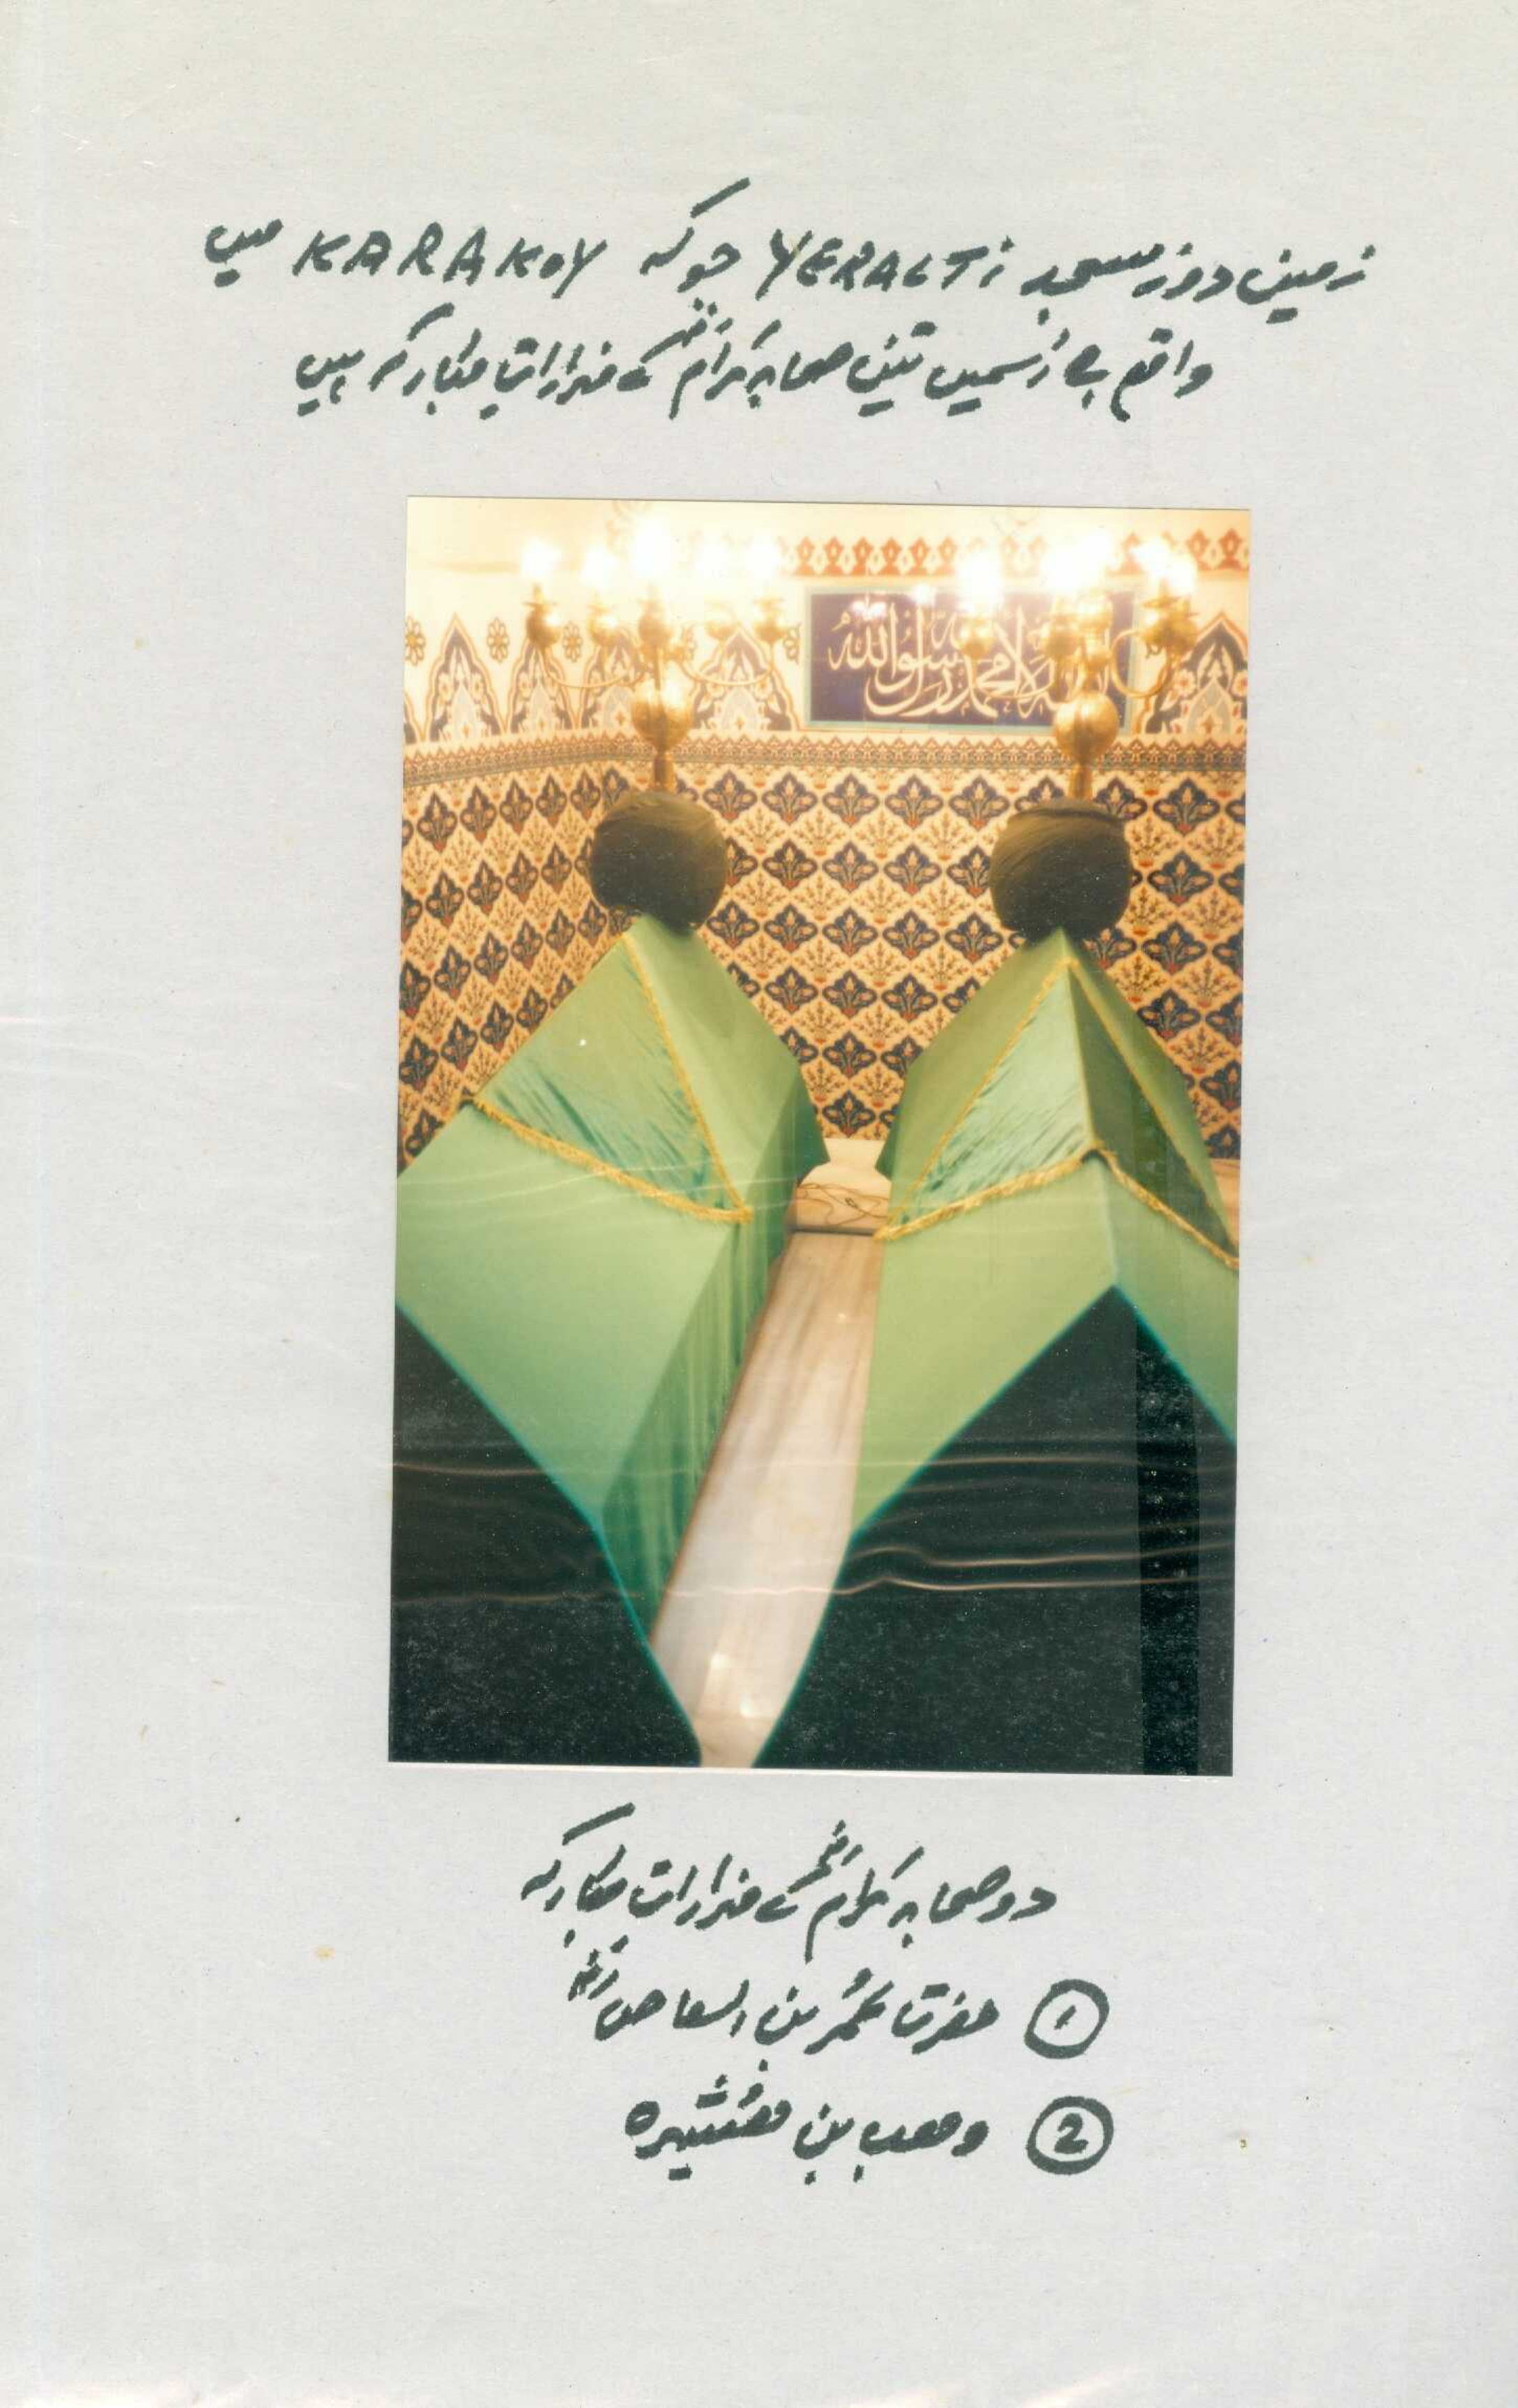 زمین دوز مسجد YERALTi جو کہ KARAKOY میں
واقع ہے اسمیں تین صحابہ کرامؓ کے مزاراتِ مبارکہ ہیں
لا محمد رسول الله
دو صحابہ کرامؓ کے مزاراتِ مبارکہ
① حضرت عمُر بن العاصؓ
② وھب بن